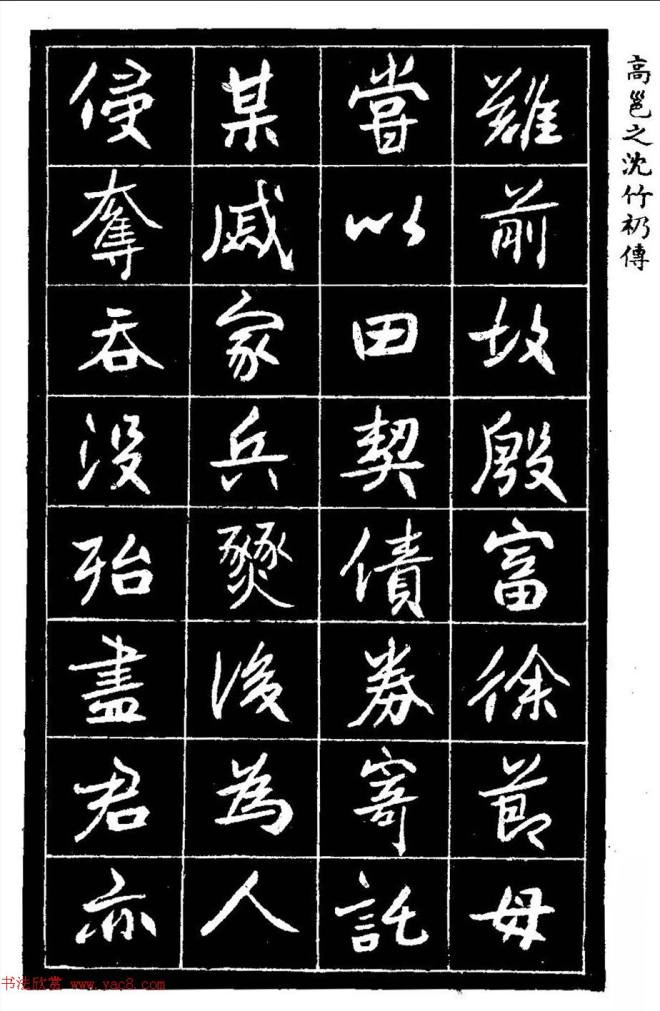 高邕之沈竹礽傳
難前故殷富徐節母
嘗以田契債券寄託
某戚家兵燹後為人
侵奪吞没殆盡君亦
书法欣赏 www.yac8.com